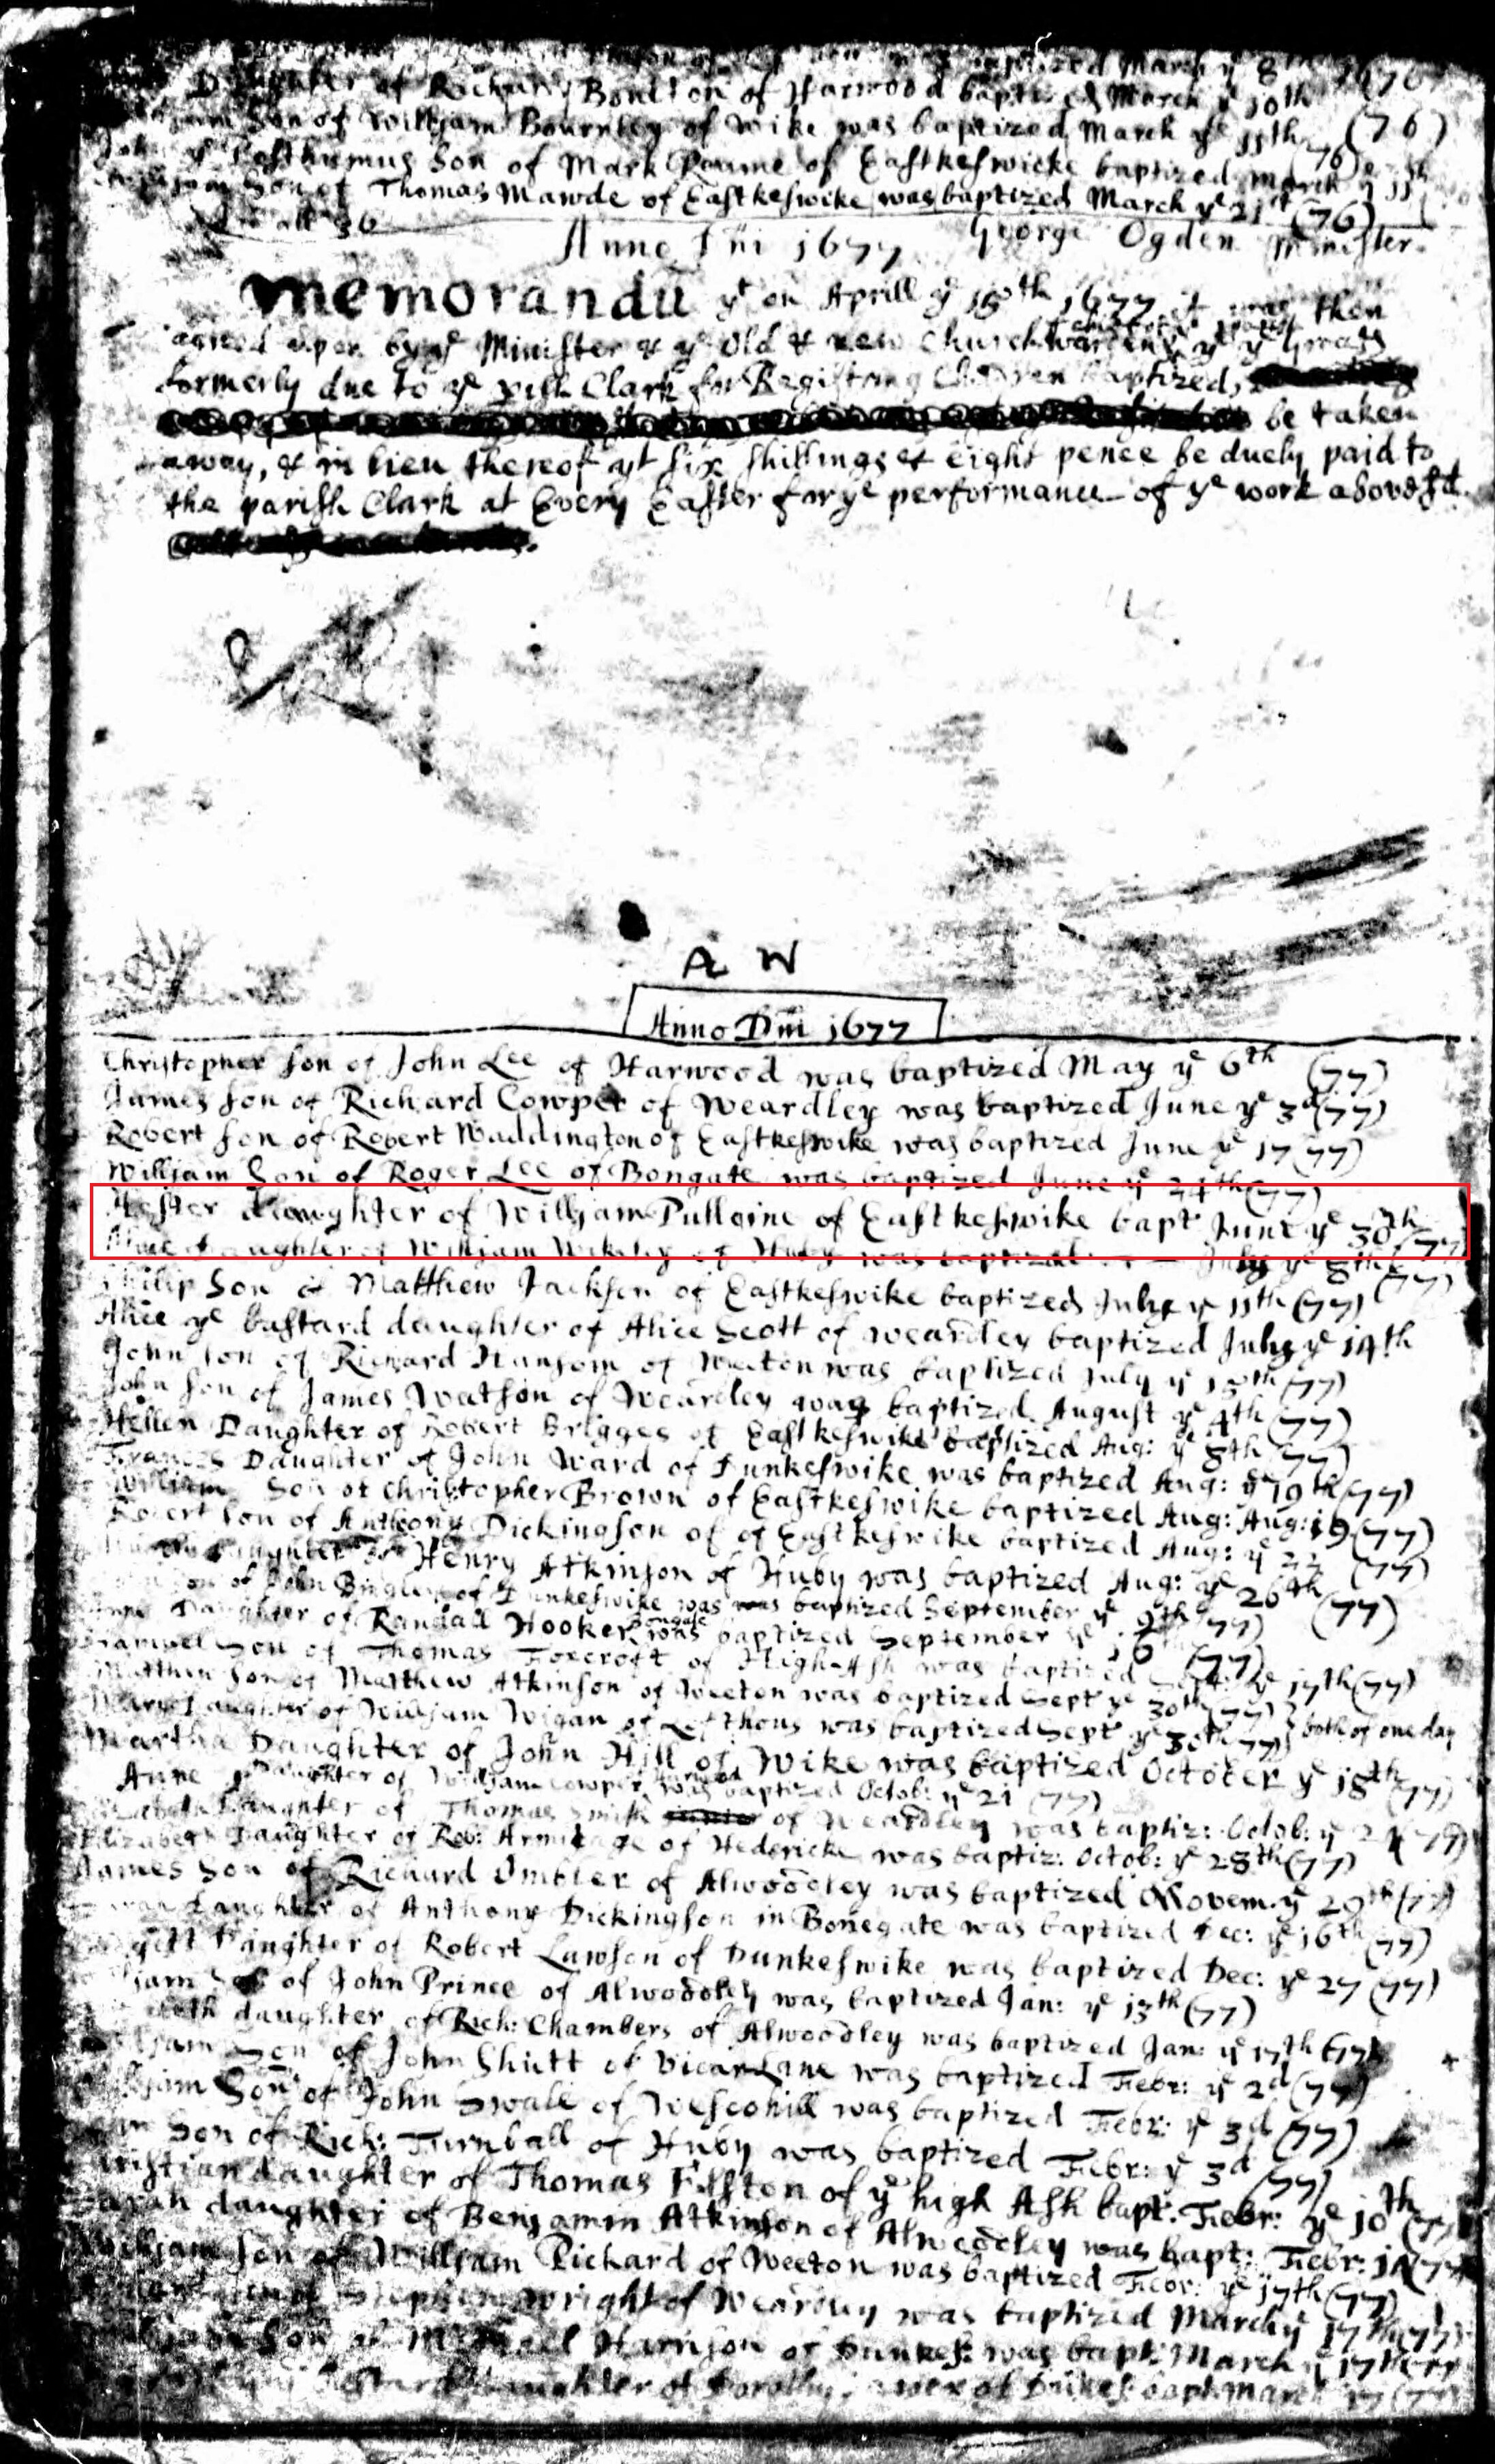 Daughter of Richard Boulton of Harwood baptized March ye 10th (76)
Son of William Bournley of Wike was baptized March ye 11th (76)
John ye Posthumus Son of Mark of Eastkeswicke baptized March ye (76)
Son of Thomas Mawde of Eastkeswike was baptized March ye 21st (76)
In all 36
George Ogden Minister
Anno Dni 1677
Memorandu yt on Aprill ye 15th 1677 it was then
agreed upon by ye Minister & ye Old & new Churchwardens yt ye
formerly due to ye pish Clark for Registring Children baptized,
be taken
away, & in lieu thereof yt six shillings & eight pence be duely paid to
the parish Clark at Every Easter for ye performance of ye work abovesd.
A W
Anno Dni 1677
Christopher son of John Lee of Harwood was baptized May ye 6th (77)
James son of Richard Cowper of Weardley was baptized June ye 3d (77)
Robert son of Robert Waddington of Eastkeswike was baptized June ye 17 (77)
William Son of Roger Lee of Bongate was baptized June ye 24th (77)
Hester daughter of William Pullaine of Eastkeswike bapt June ye 30th (77)
daughter of William of Huby was baptized July ye 8th (77)
Philip Son of Matthew Jackson of Eastkeswike baptized July ye 11th (77)
Alice ye bastard daughter of Alice Scott of Weardley baptized July ye 14th
John son of Richard Hansom of Weeton was baptized July ye 15th (77)
John son of James Watson of Weardley was baptized August ye 4th (77)
Hellen Daughter of Robert Brigges of Eastkeswike baptized Aug: ye 8th (77)
Frances Daughter of John Ward of Dunkeswike was baptized Aug: ye 19th (77)
William Son of Christopher Brown of Eastkeswike baptized Aug: Aug: 19 (77)
Robert son of Anthony Dickingson of of Eastkeswike baptized Aug: ye 22 (77)
daughter of Henry Atkinson of Huby was baptized Aug: ye 26th (77)
son of John of Dunkeswike was was baptized September ye 9th (77)
Daughter of Randall Hooker Bongate was baptized September ye 16 (77)
Samuel Son of Thomas Foxcroft of High-Ash was baptized Sept: ye 17th (77)
Matthew son of Matthew Atkinson of Weeton was baptized Sept ye 30th (77)
Mary Daughter of William Wigan of Lofthous was baptized Sept ye 30th (77) both of one day
Martha Daughter of John Hill of Wike was baptized October ye 18th (77)
Anne Daughter of William Cowper Harwood was baptized Octob: ye 21 (77)
Daughter of Thomas Smith of Weardley was baptiz: Octob: ye (77)
Elizabeth Daughter of Rob: Armitage of Hedericke was baptiz: Octob: ye 28th (77)
James Son of Richard Umbler of Alwoodley was baptized Novem. ye 29th (77)
Daughter of Anthony Dickingson in Bonegate was baptized Dec: ye 16th (77)
Daughter of Robert Lawson of Dunkeswike was baptized Dec: ye 27 (77)
Son of John Prince of Alwoodley was baptized Jan: ye 13th (77)
daughter of Rich: Chambers of Alwoodley was baptized Jan: ye 17th (77)
Son of John Shutt of Vicar Lane was baptized Febr: ye 2d (77)
Son of John Swale of Wescohill was baptized Febr: ye 3d (77)
Son of Rich: Turnball of Huby was baptized Febr: ye 3d (77)
Christian daughter of Thomas of ye high Ash bapt: Febr: ye 10th (77)
Sarah daughter of Benjamin Atkinson of Alwoodley was bapt: Febr: (77)
William son of William Pickard of Weeton was baptized Febr: ye 17th (77)
Stephen Wright of Weardley was baptized March ye 17th (77)
Son of Michael Harrison of Dunkes: was bapt March ye 17th (77)
Bastard daughter of Dorothy of bapt March 17 (77)